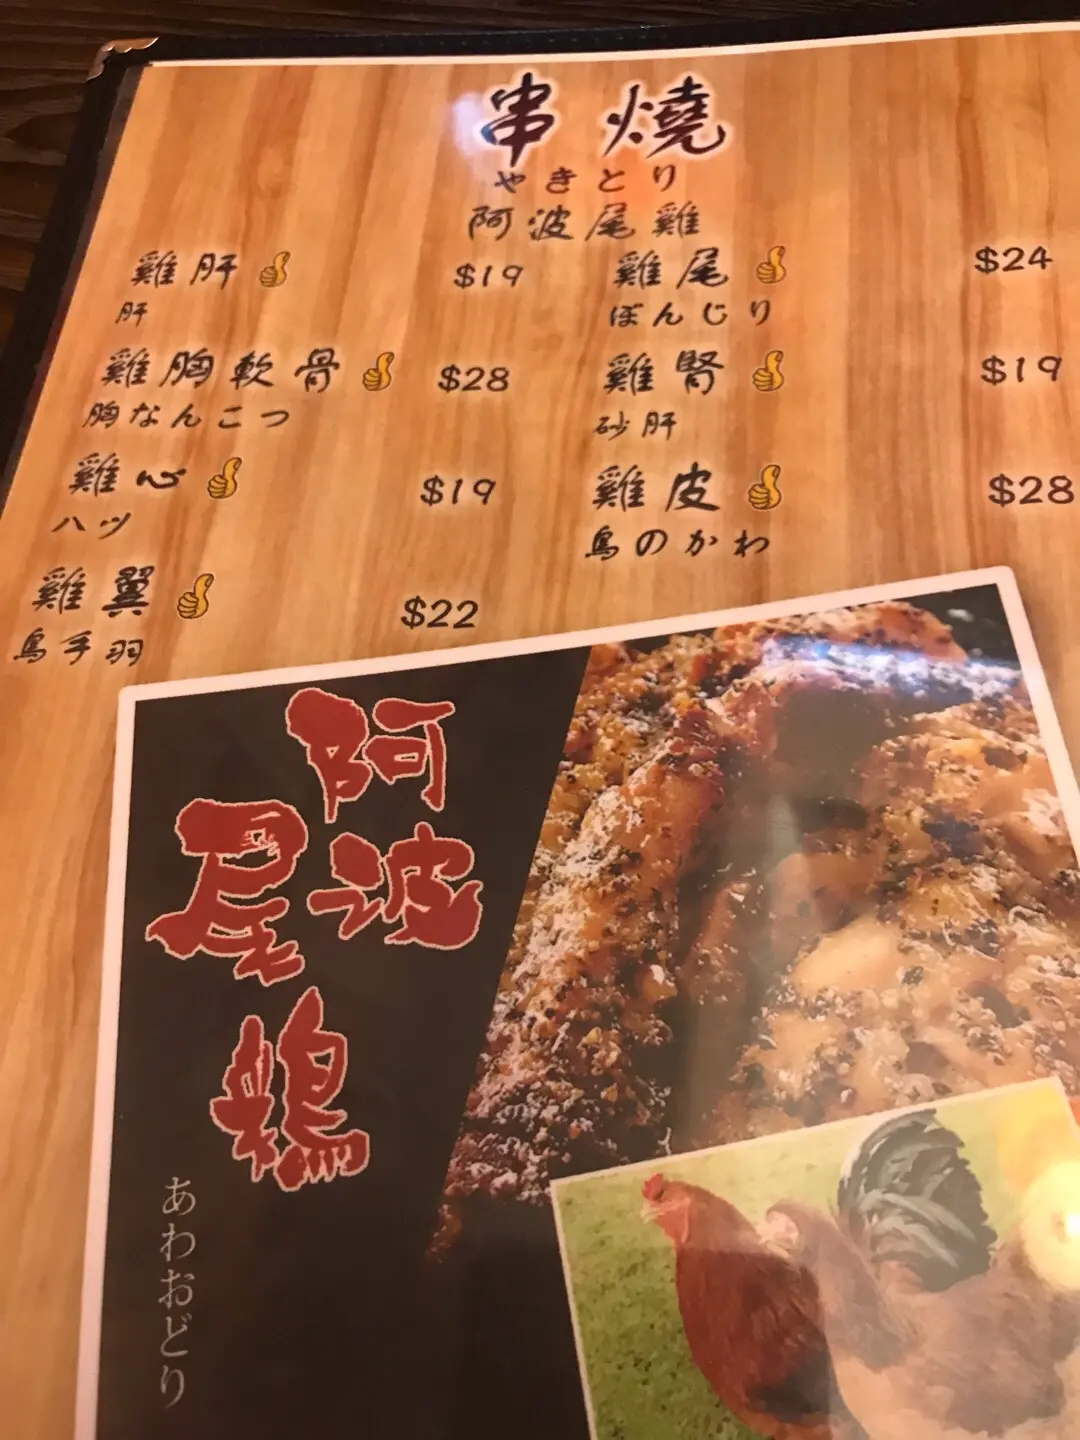 串燒
やきとり
阿波尾雞
雞肝 $19
肝
雞胸軟骨 $28
胸なんこつ
雞心 $19
ハツ
雞翼 $22
鳥手羽
雞尾 $24
ぼんじり
雞腎 $19
砂肝
雞皮 $28
鳥のかわ
阿波
尾鶏
あわおどり